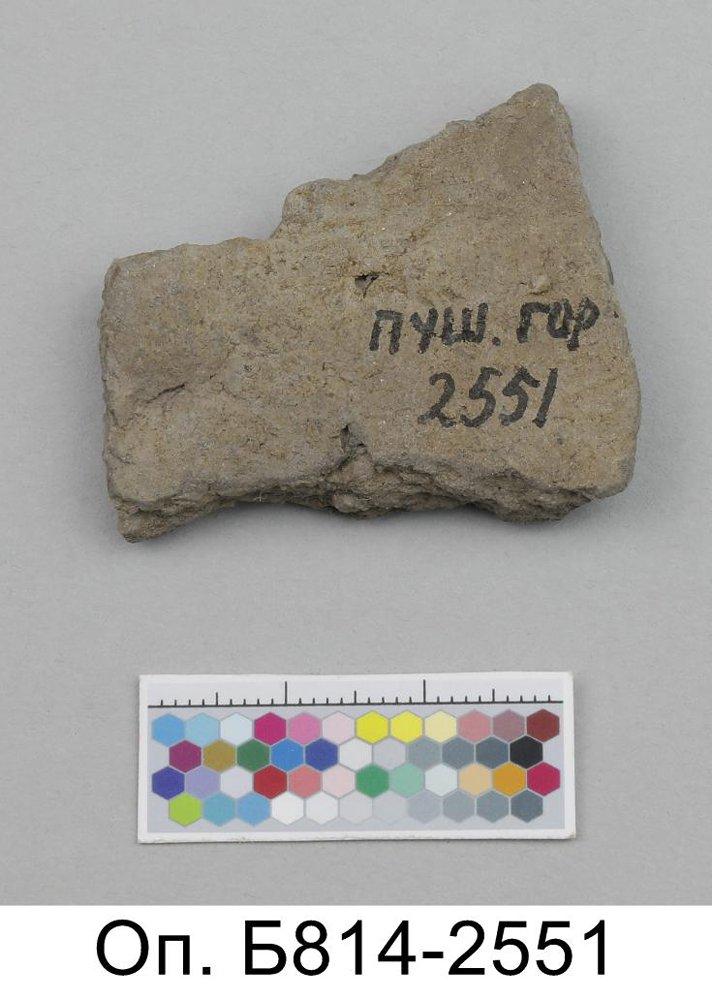 пуш. гор
2551
Оп. Б814-2551